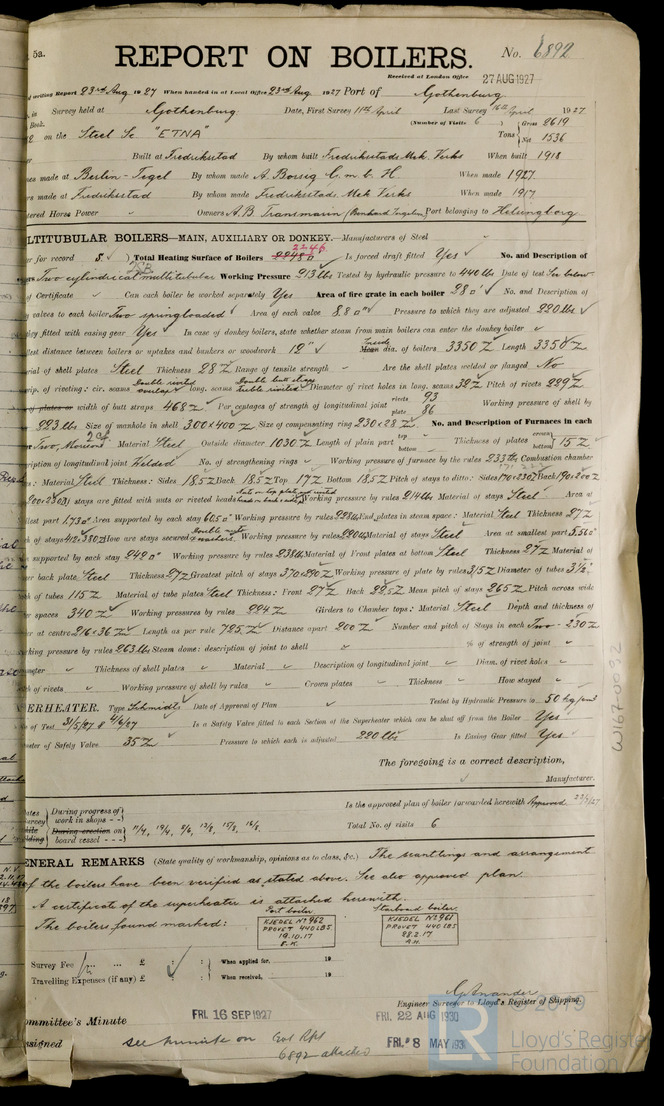 5a.
REPORT ON BOILERS.
No. 6892
Received at London Office 27 AUG 1927
writing Report 23rd Aug 1927 When handed in at Local Office 23rd Aug. 1927 Port of Gothenburg
Survey held at Gothenburg Date, First Survey 11th April Last Survey 16th April 1927
Book. (Number of Visits 6)
on the Steel Sc "ETNA" Tons Gross 2619 Net 1536
Built at Fredriksstad By whom built Fredriksstads Mek. Verks When built 1918
made at Berlin-Tegel By whom made A. Borsig G.m.b.H. When made 1927
made at Fredriksstad By whom made Fredriksstad. Mek Verks When made 1917
Horse Power Owners A.B. Transmarin Port belonging to Helsingborg
MULTITUBULAR BOILERS—MAIN, AUXILIARY OR DONKEY.—Manufacturers of Steel
2246
for record S. Total Heating Surface of Boilers Is forced draft fitted Yes No. and Description of
Two cylindrical multitubular Working Pressure 213 lbs Tested by hydraulic pressure to 440 lbs Date of test See below
of Certificate Can each boiler be worked separately Yes Area of fire grate in each boiler 28 □' No. and Description of
valves to each boiler Two springloaded Area of each valve 8.8 □" Pressure to which they are adjusted 220 lbs
they fitted with easing gear Yes In case of donkey boilers, state whether steam from main boilers can enter the donkey boiler
distance between boilers or uptakes and bunkers or woodwork 12" Inside dia. of boilers 3350 Length 3350
of shell plates Steel Thickness 28 Range of tensile strength Are the shell plates welded or flanged No
of riveting: cir. seams Double riveted overlap long. seams Double butt straps treble riveted Diameter of rivet holes in long. seams 32 Pitch of rivets 229
width of butt straps 468 Percentages of strength of longitudinal joint rivets 93 plate 86 Working pressure of shell by
223 lbs Size of manhole in shell 300x400 Size of compensating ring 230x28 No. and Description of Furnaces in each
Two, Morison Material Steel Outside diameter 1030 Length of plain part top bottom Thickness of plates crown bottom 15
of longitudinal joint Welded No. of strengthening rings Working pressure of furnace by the rules 233 lbs Combustion chamber
Material Steel Thickness: Sides 18.5 Back 18.5 Top 17 Bottom 18.5 Pitch of stays to ditto: Sides 170x230 Back 190x200
stays are fitted with nuts or riveted heads Working pressure by rules 214 lbs Material of stays Steel Area at
part 1.73 □" Area supported by each stay 60.5 □" Working pressure by rules 228 lbs End plates in steam space: Material Steel Thickness 27
of stays 412x380 How are stays secured Double nuts & washers Working pressure by rules 220 lbs Material of stays Steel Area at smallest part 5.56 □"
supported by each stay 242 □" Working pressure by rules 238 lbs Material of Front plates at bottom Steel Thickness 27 Material of
back plate Steel Thickness 27 Greatest pitch of stays 370x290 Working pressure of plate by rules 315 Diameter of tubes 3½"
of tubes 115 Material of tube plates Steel Thickness: Front 27 Back 22.5 Mean pitch of stays 265 Pitch across wide
spaces 340 Working pressures by rules 224 Girders to Chamber tops: Material Steel Depth and thickness of
at centre 216x36 Length as per rule 725 Distance apart 200 Number and pitch of Stays in each Two - 230
Working pressure by rules 263 lbs Steam dome: description of joint to shell % of strength of joint
Thickness of shell plates Material Description of longitudinal joint Diam. of rivet holes
of rivets Working pressure of shell by rules Crown plates Thickness How stayed
SUPERHEATER. Type Schmidts Date of Approval of Plan Tested by Hydraulic Pressure to 50 kg/cm²
of Test 31/5/27 & 4/6/27 Is a Safety Valve fitted to each Section of the Superheater which can be shut off from the Boiler Yes
of Safety Valve 35 Pressure to which each is adjusted 220 lbs Is Easing Gear fitted Yes
The foregoing is a correct description,
Manufacturer.
During progress of work in shops - -
During erection on board vessel - - 11/4, 19/4, 2/6, 13/8, 15/8, 16/8.
Is the approved plan of boiler forwarded herewith Approved
Total No. of visits 6
GENERAL REMARKS (State quality of workmanship, opinions as to class, &c.) The scantlings and arrangement
of the boilers have been verified as stated above. See also approved plan.
A certificate of the superheater is attached herewith.
The boilers found marked:
Port boiler.
KJEDEL No 962
PROVET 440 LBS
19.10.17
Starboard boiler.
KJEDEL No 961
PROVET 440 LBS
28.2.17
Survey Fee ... ... £ When applied for, 19
Travelling Expenses (if any) £ When received, 19
Engineer Surveyor to Lloyd's Register of Shipping.
Committee's Minute FRI. 16 SEP 1927 FRI. 22 AUG 1930
Assigned see minute on Rpt 6892 attached FRI. 8 MAY 1931
W167-0092
LR
© 2019
Lloyd's Register
Foundation